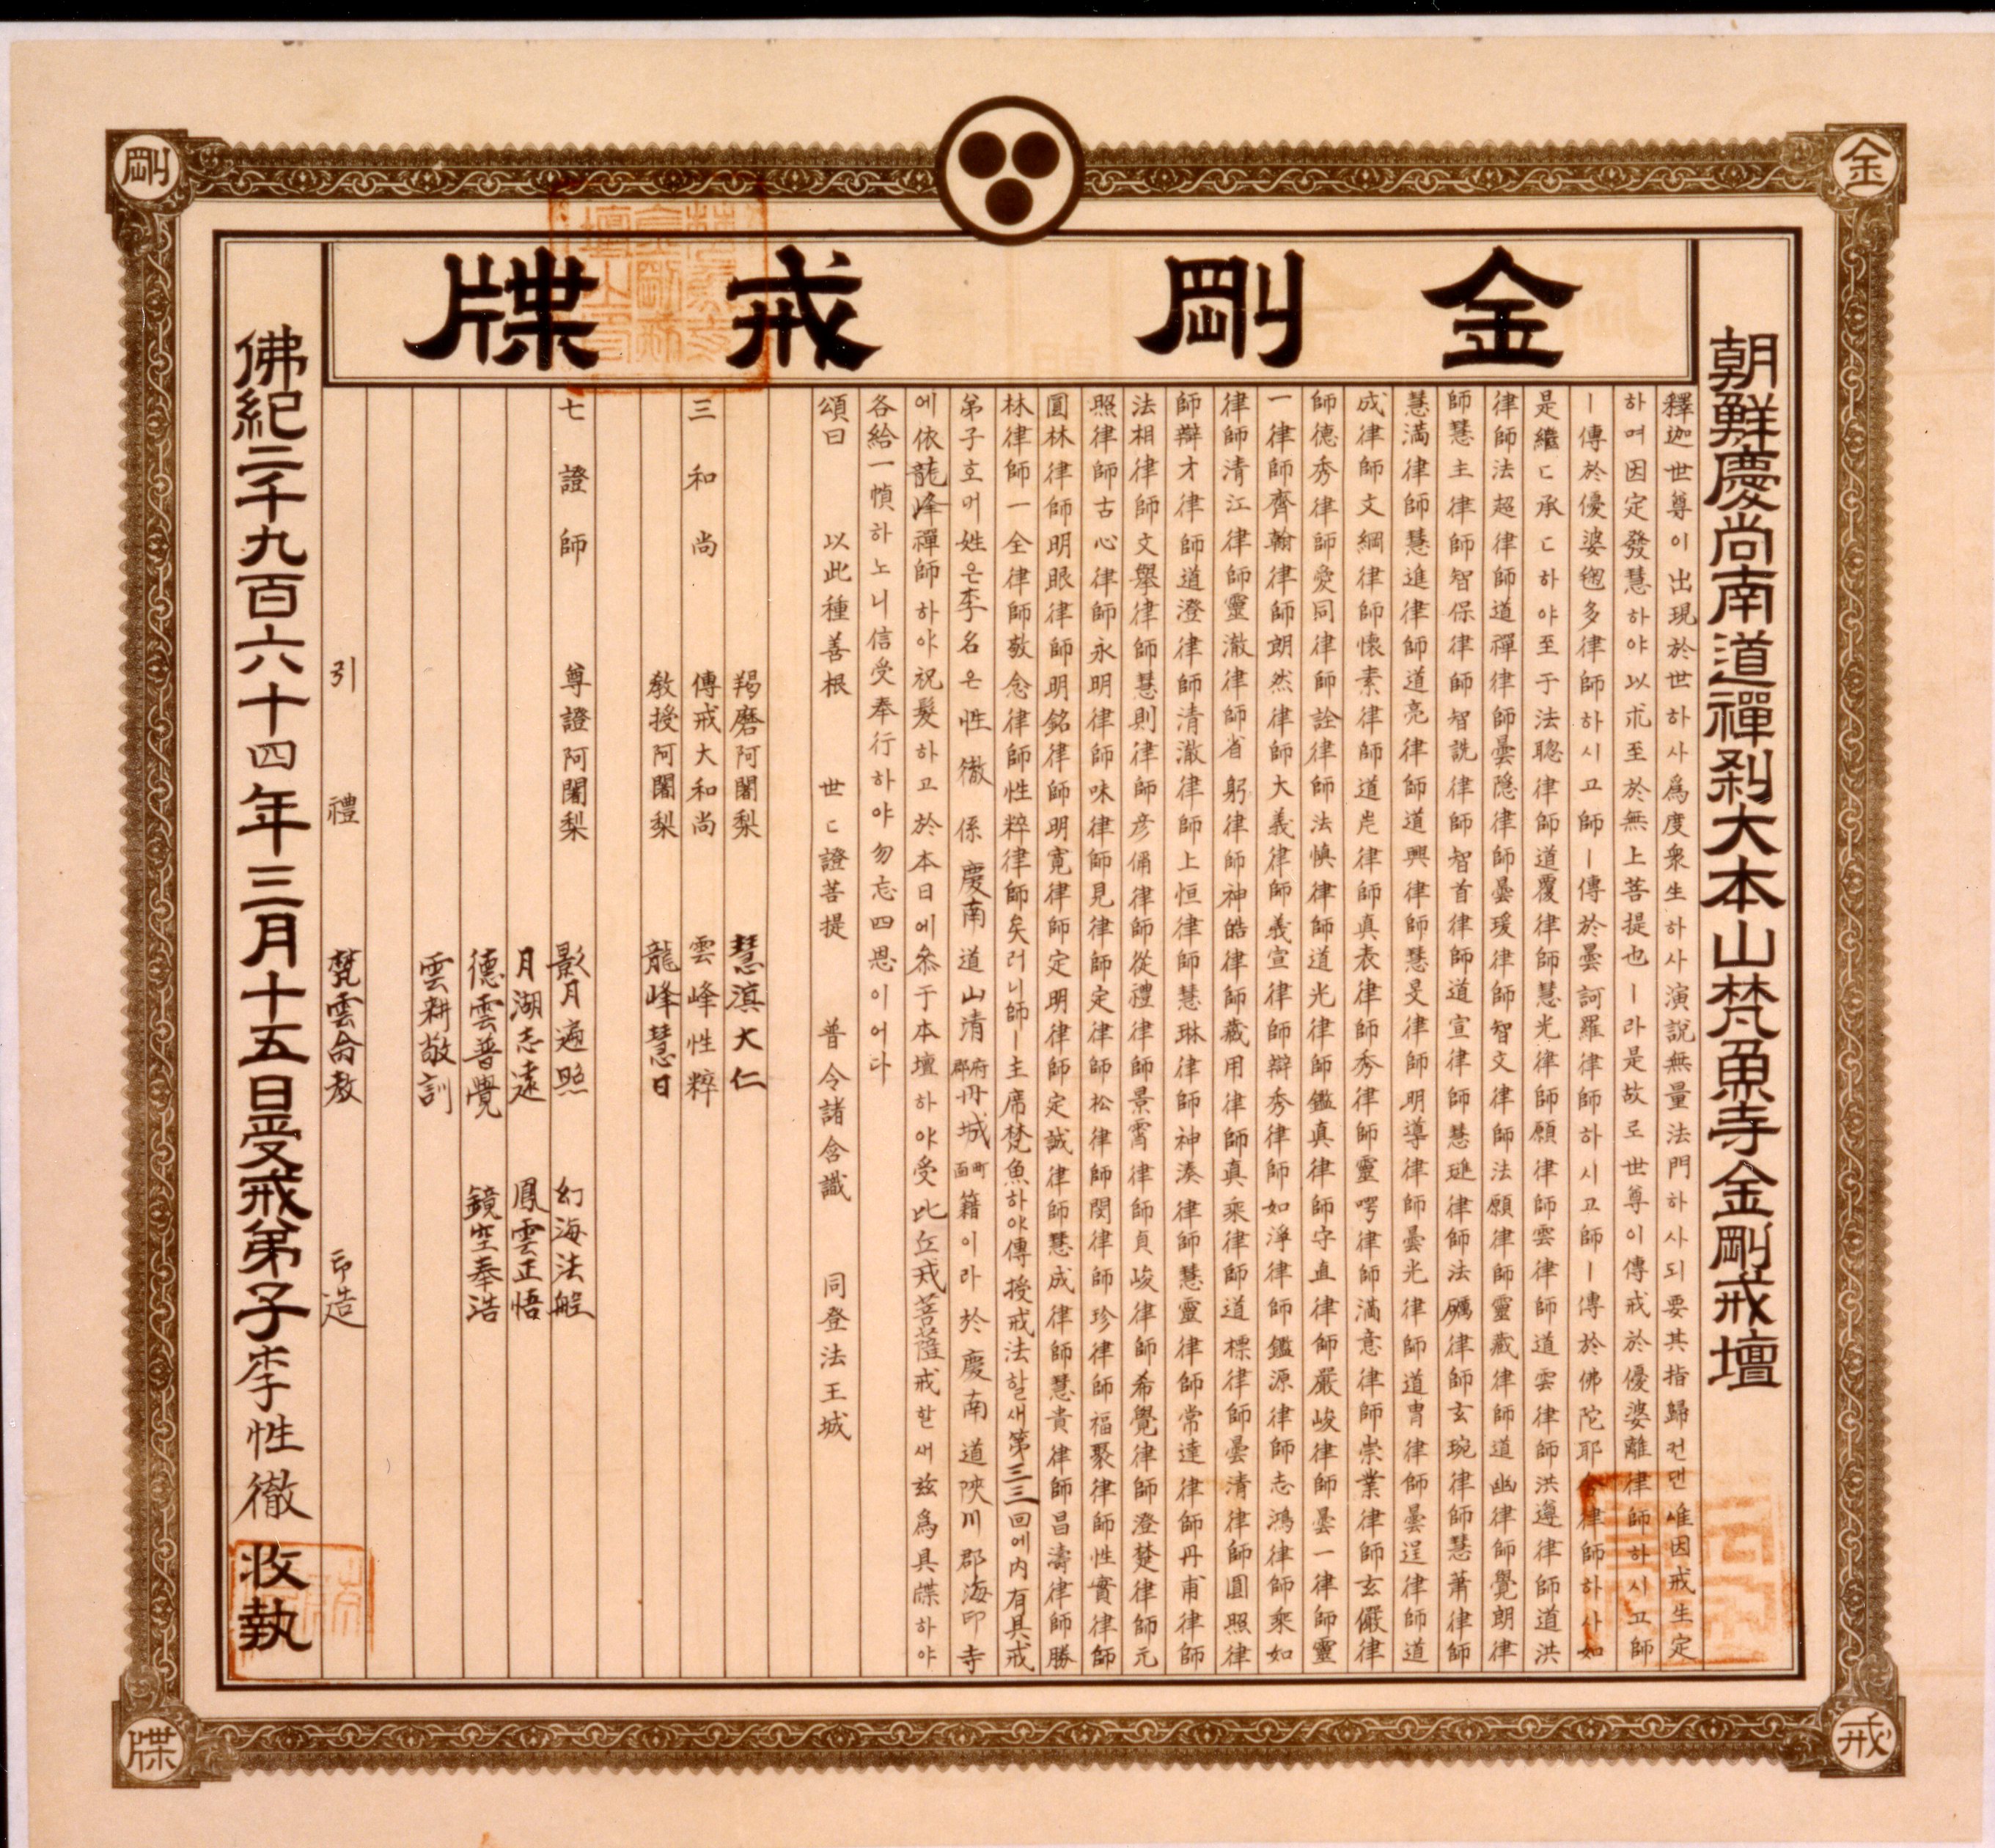 金剛戒牒
朝鮮慶尚南道禪刹大本山梵魚寺金剛戒壇
釋迦世尊이出現於世하사爲度衆生하사演說無量法門하사되要其指歸컨댄唯因戒生定
하며因定發慧하야以求至於無上菩提也ㅣ라是故로世尊이傳戒於優婆離律師하시고師
ㅣ傳於優婆毱多律師하시고師ㅣ傳於曇訶羅律師하시고師ㅣ傳於佛陀耶舍律師하사如
是繼ㄷ承ㄷ하야至于法聰律師道覆律師慧光律師願律師雲律師道雲律師洪遵律師道洪
律師法超律師道禪律師曇隱律師曇瑗律師智文律師法願律師靈藏律師道幽律師覺朗律
師慧主律師智保律師智詵律師智首律師道宣律師慧璡律師法礪律師玄琬律師慧蕭律師
慧滿律師慧進律師道亮律師道興律師慧旻律師明導律師曇光律師道胄律師曇逞律師道
成律師文綱律師懷素律師道岸律師真表律師秀律師靈㟧律師滿意律師崇業律師玄儼律
師德秀律師愛同律師詮律師法慎律師道光律師鑑真律師守直律師嚴峻律師曇一律師靈
一律師齊翰律師朗然律師大義律師義宣律師辯秀律師如淨律師鑑源律師志鴻律師乘如
律師清江律師靈澈律師省躬律師神皓律師藏用律師真乘律師道標律師曇清律師圓照律
師辯才律師道澄律師清澈律師上恒律師慧琳律師神湊律師慧靈律師常達律師丹甫律師
法相律師文舉律師慧則律師彦偁律師從禮律師景霄律師貞峻律師希覺律師澄楚律師元
照律師古心律師永明律師味律師見律師定律師松律師閔律師珍律師福聚律師性實律師
圓林律師明眼律師明銘律師明寬律師定明律師定誠律師慧成律師慧貴律師昌濤律師勝
林律師一全律師敬念律師性粹律師矣러니師ㅣ主席梵魚하야傳授戒法할새第三三回에内有具戒
弟子호머姓은李名은性徹係慶南道山清郡府丹城面町籍이라於慶南道陜川郡海印寺
에依龍峰禪師하야祝髮하고於本日에叅于本壇하야受比丘戒菩薩戒한새玆爲具牒하야
各給一慎하노니信受奉行하야勿忘四恩이어다
頌曰　以此種善根　世ㄷ證菩提　普令諸含識　同登法王城
羯磨阿闍梨　慧滇大仁
三和尚　傳戒大和尚　雲峰性粹
教授阿闍梨　龍峰慧日
七證師　尊證阿闍梨　影月遍照　幻海法船
月湖志遠　鳳雲正悟
德雲普覺　鏡空奉浩
雲耕敬訓
引禮　梵雲命敖　印造
佛紀二千九百六十四年三月十五日受戒弟子李性徹收執
金
剛
戒
牒